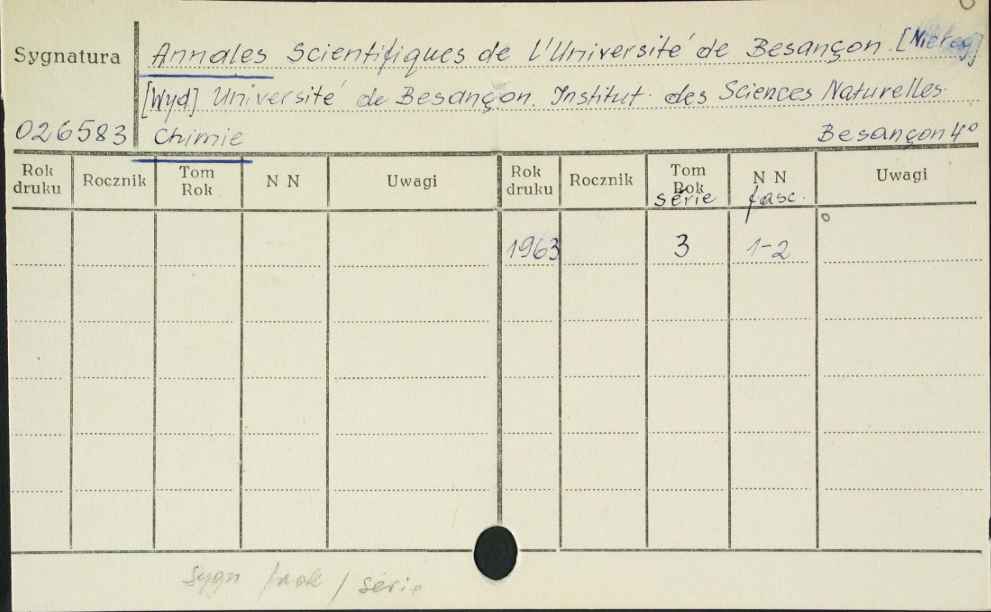 Sygnatura Annales Scientifiques de l'Université de Besançon. [Niereg]
[Wyd] Université de Besançon. Institut des Sciences Naturelles.
026583 Chimie Besançon 4°
Rok druku Rocznik Tom Rok N N Uwagi Rok druku Rocznik Tom Rok N N Uwagi
série fasc.
1963 3 1-2
Sygn / série